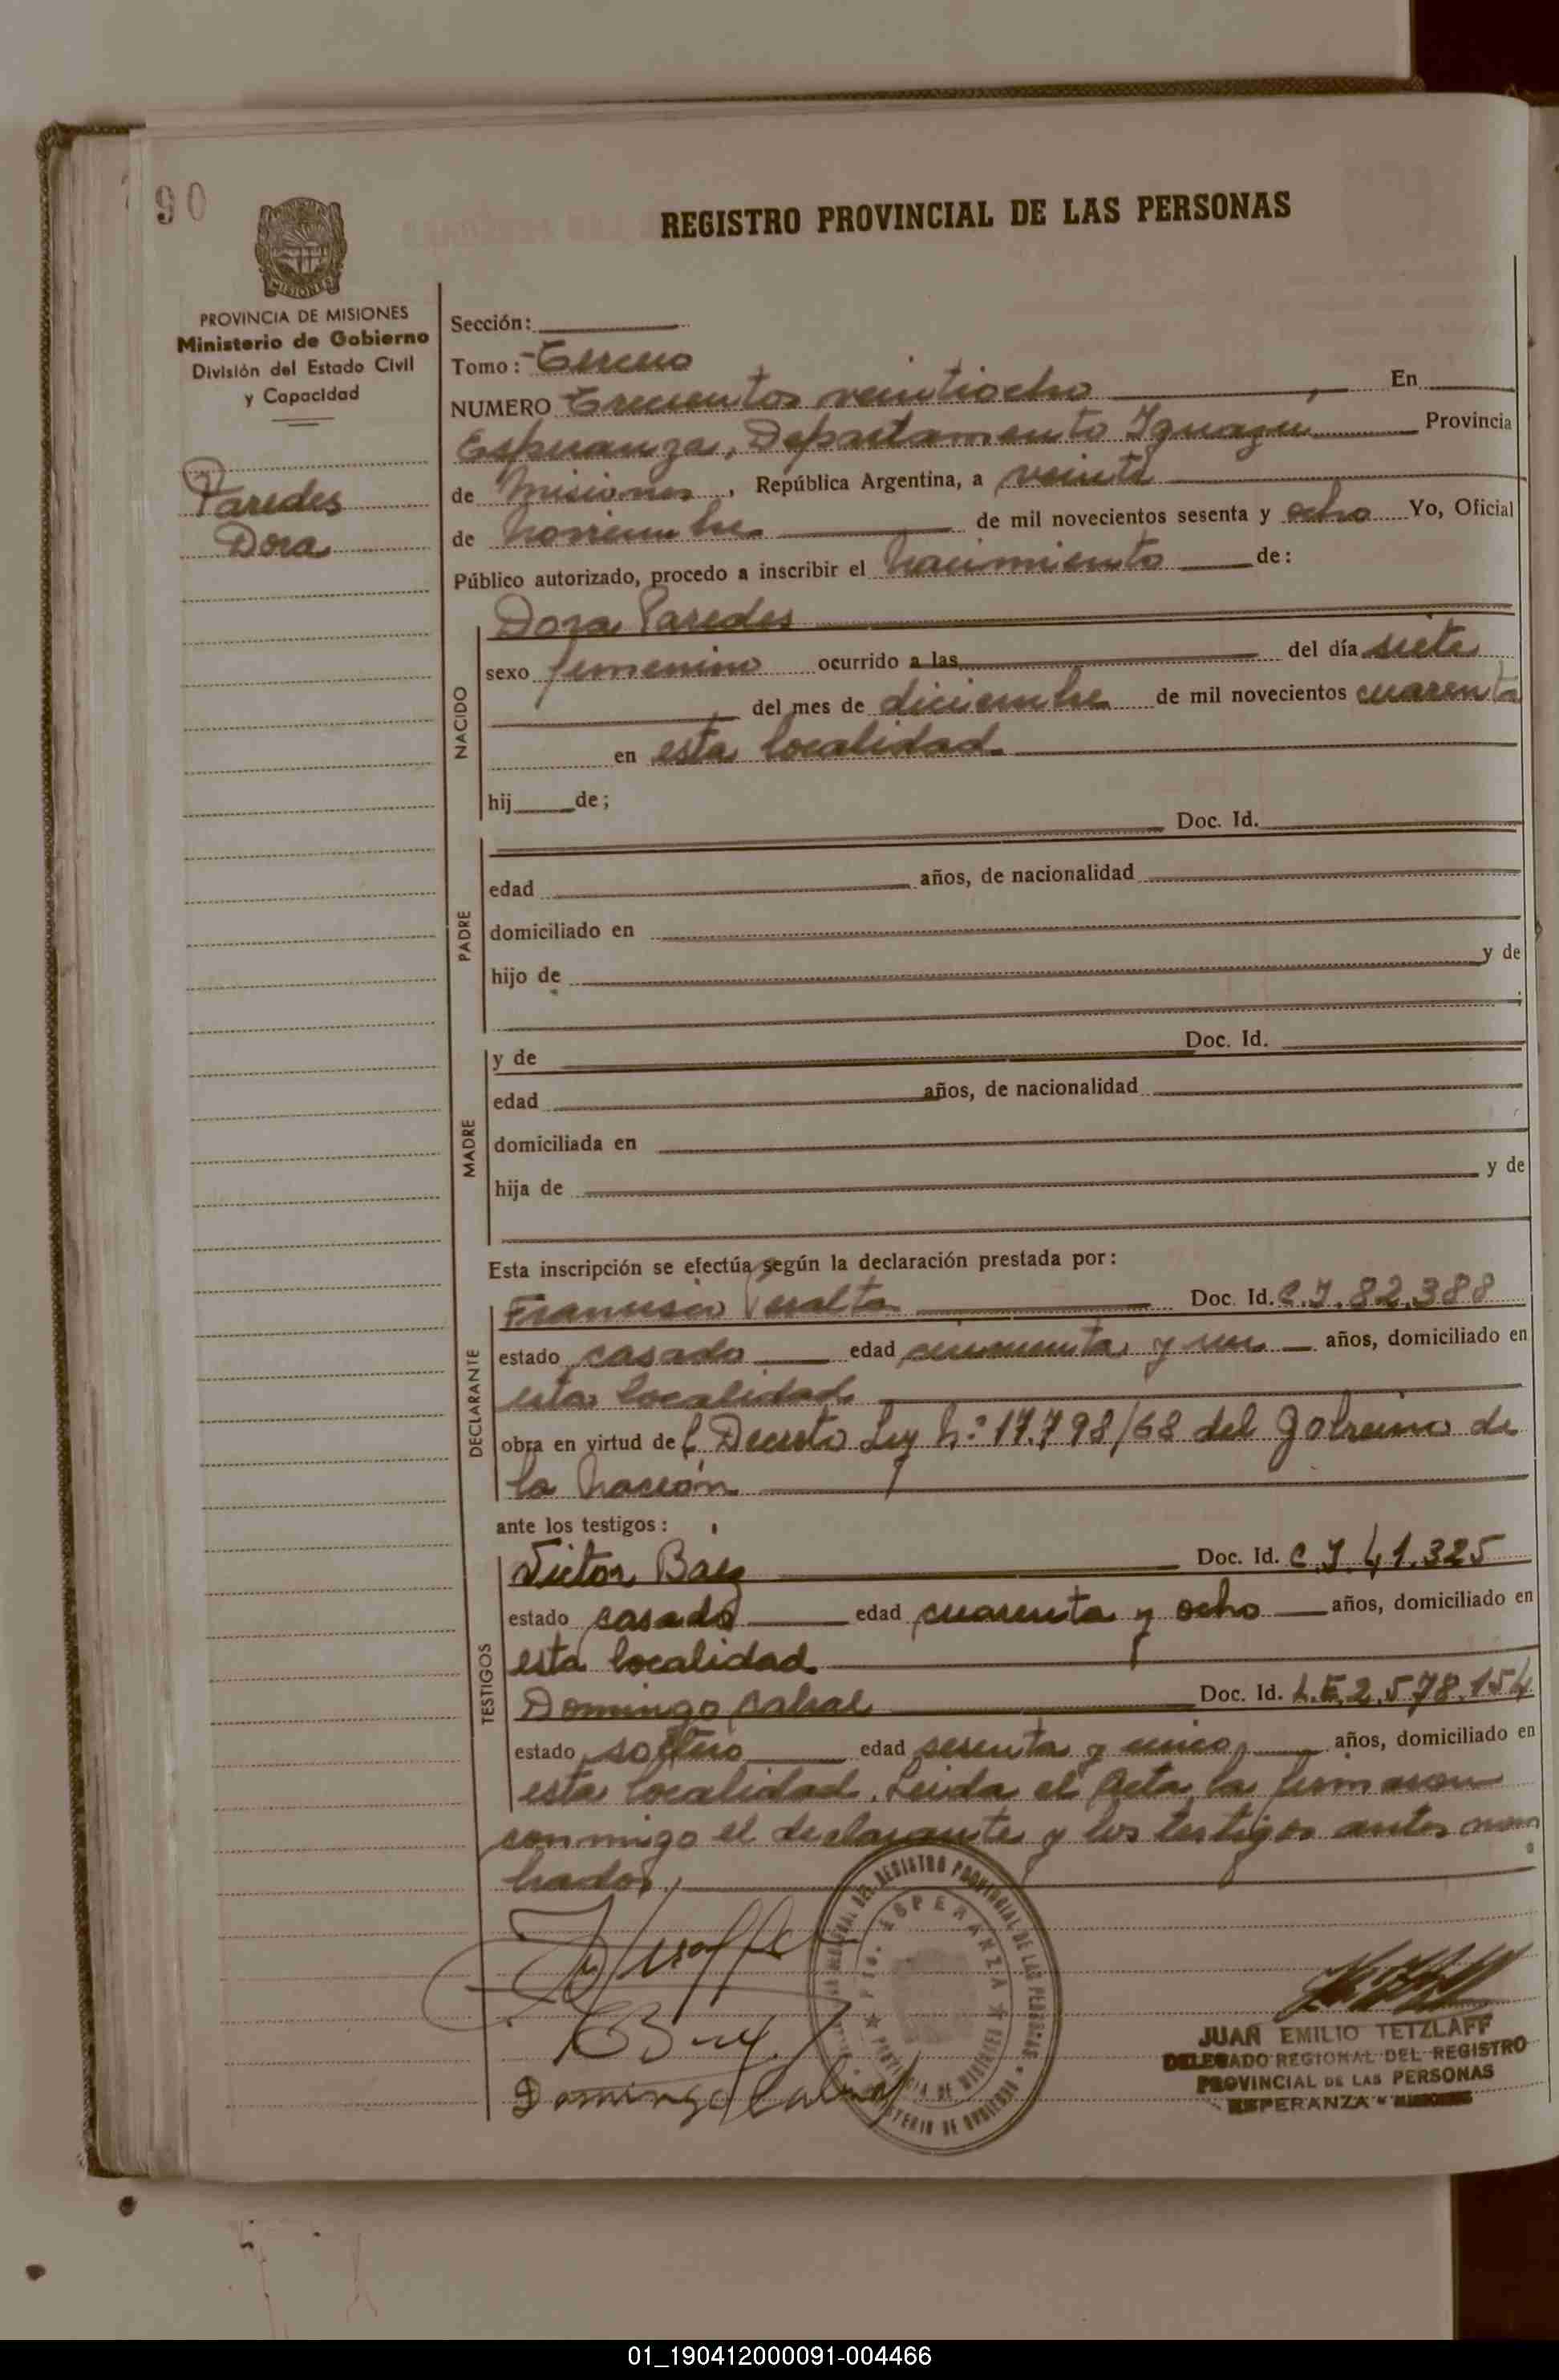 90
REGISTRO PROVINCIAL DE LAS PERSONAS
MISIONES
PROVINCIA DE MISIONES
Ministerio de Gobierno
División del Estado Civil
y Capacidad
Paredes
Dora
Sección:
Tomo: Tercero
NUMERO Trecientos veintiocho, En
Esperanza, Departamento Iguazu Provincia
de Misiones, República Argentina, a veinte
de Noviembre de mil novecientos sesenta y ocho Yo, Oficial
Público autorizado, procedo a inscribir el Nacimiento de:
NACIDO
Dora Paredes
sexo femenino ocurrido a las del día siete
del mes de diciembre de mil novecientos cuarenta
en esta localidad
hij de;
PADRE
Doc. Id.
edad años, de nacionalidad
domiciliado en
hijo de y de
MADRE
y de Doc. Id.
edad años, de nacionalidad
domiciliada en
hija de y de
Esta inscripción se efectúa según la declaración prestada por:
DECLARANTE
Francisco Peralta Doc. Id. C.I. 82.388
estado casado edad cincuenta y un años, domiciliado en
esta localidad
obra en virtud del Decreto Ley N.º 17.798/68 del Gobierno de
la Nación
ante los testigos:
TESTIGOS
Victor Baez Doc. Id. C.I. 41.325
estado casado edad cuarenta y ocho años, domiciliado en
esta localidad
Domingo Cabral Doc. Id. L.E. 2.578.154
estado soltero edad sesenta y cinco, años, domiciliado en
esta localidad. Leida el Acta, la firmaron
conmigo el declarante y los testigos antes nom
brados,
DEL REGISTRO PROVINCIAL DE LAS PERSONAS
PTO. ESPERANZA
PROVINCIA DE MISIONES
MINISTERIO DE GOBIERNO
Domingo Cabral
JUAN EMILIO TETZLAFF
DELEGADO REGIONAL DEL REGISTRO
PROVINCIAL DE LAS PERSONAS
ESPERANZA - MISIONES
01_190412000091-004466